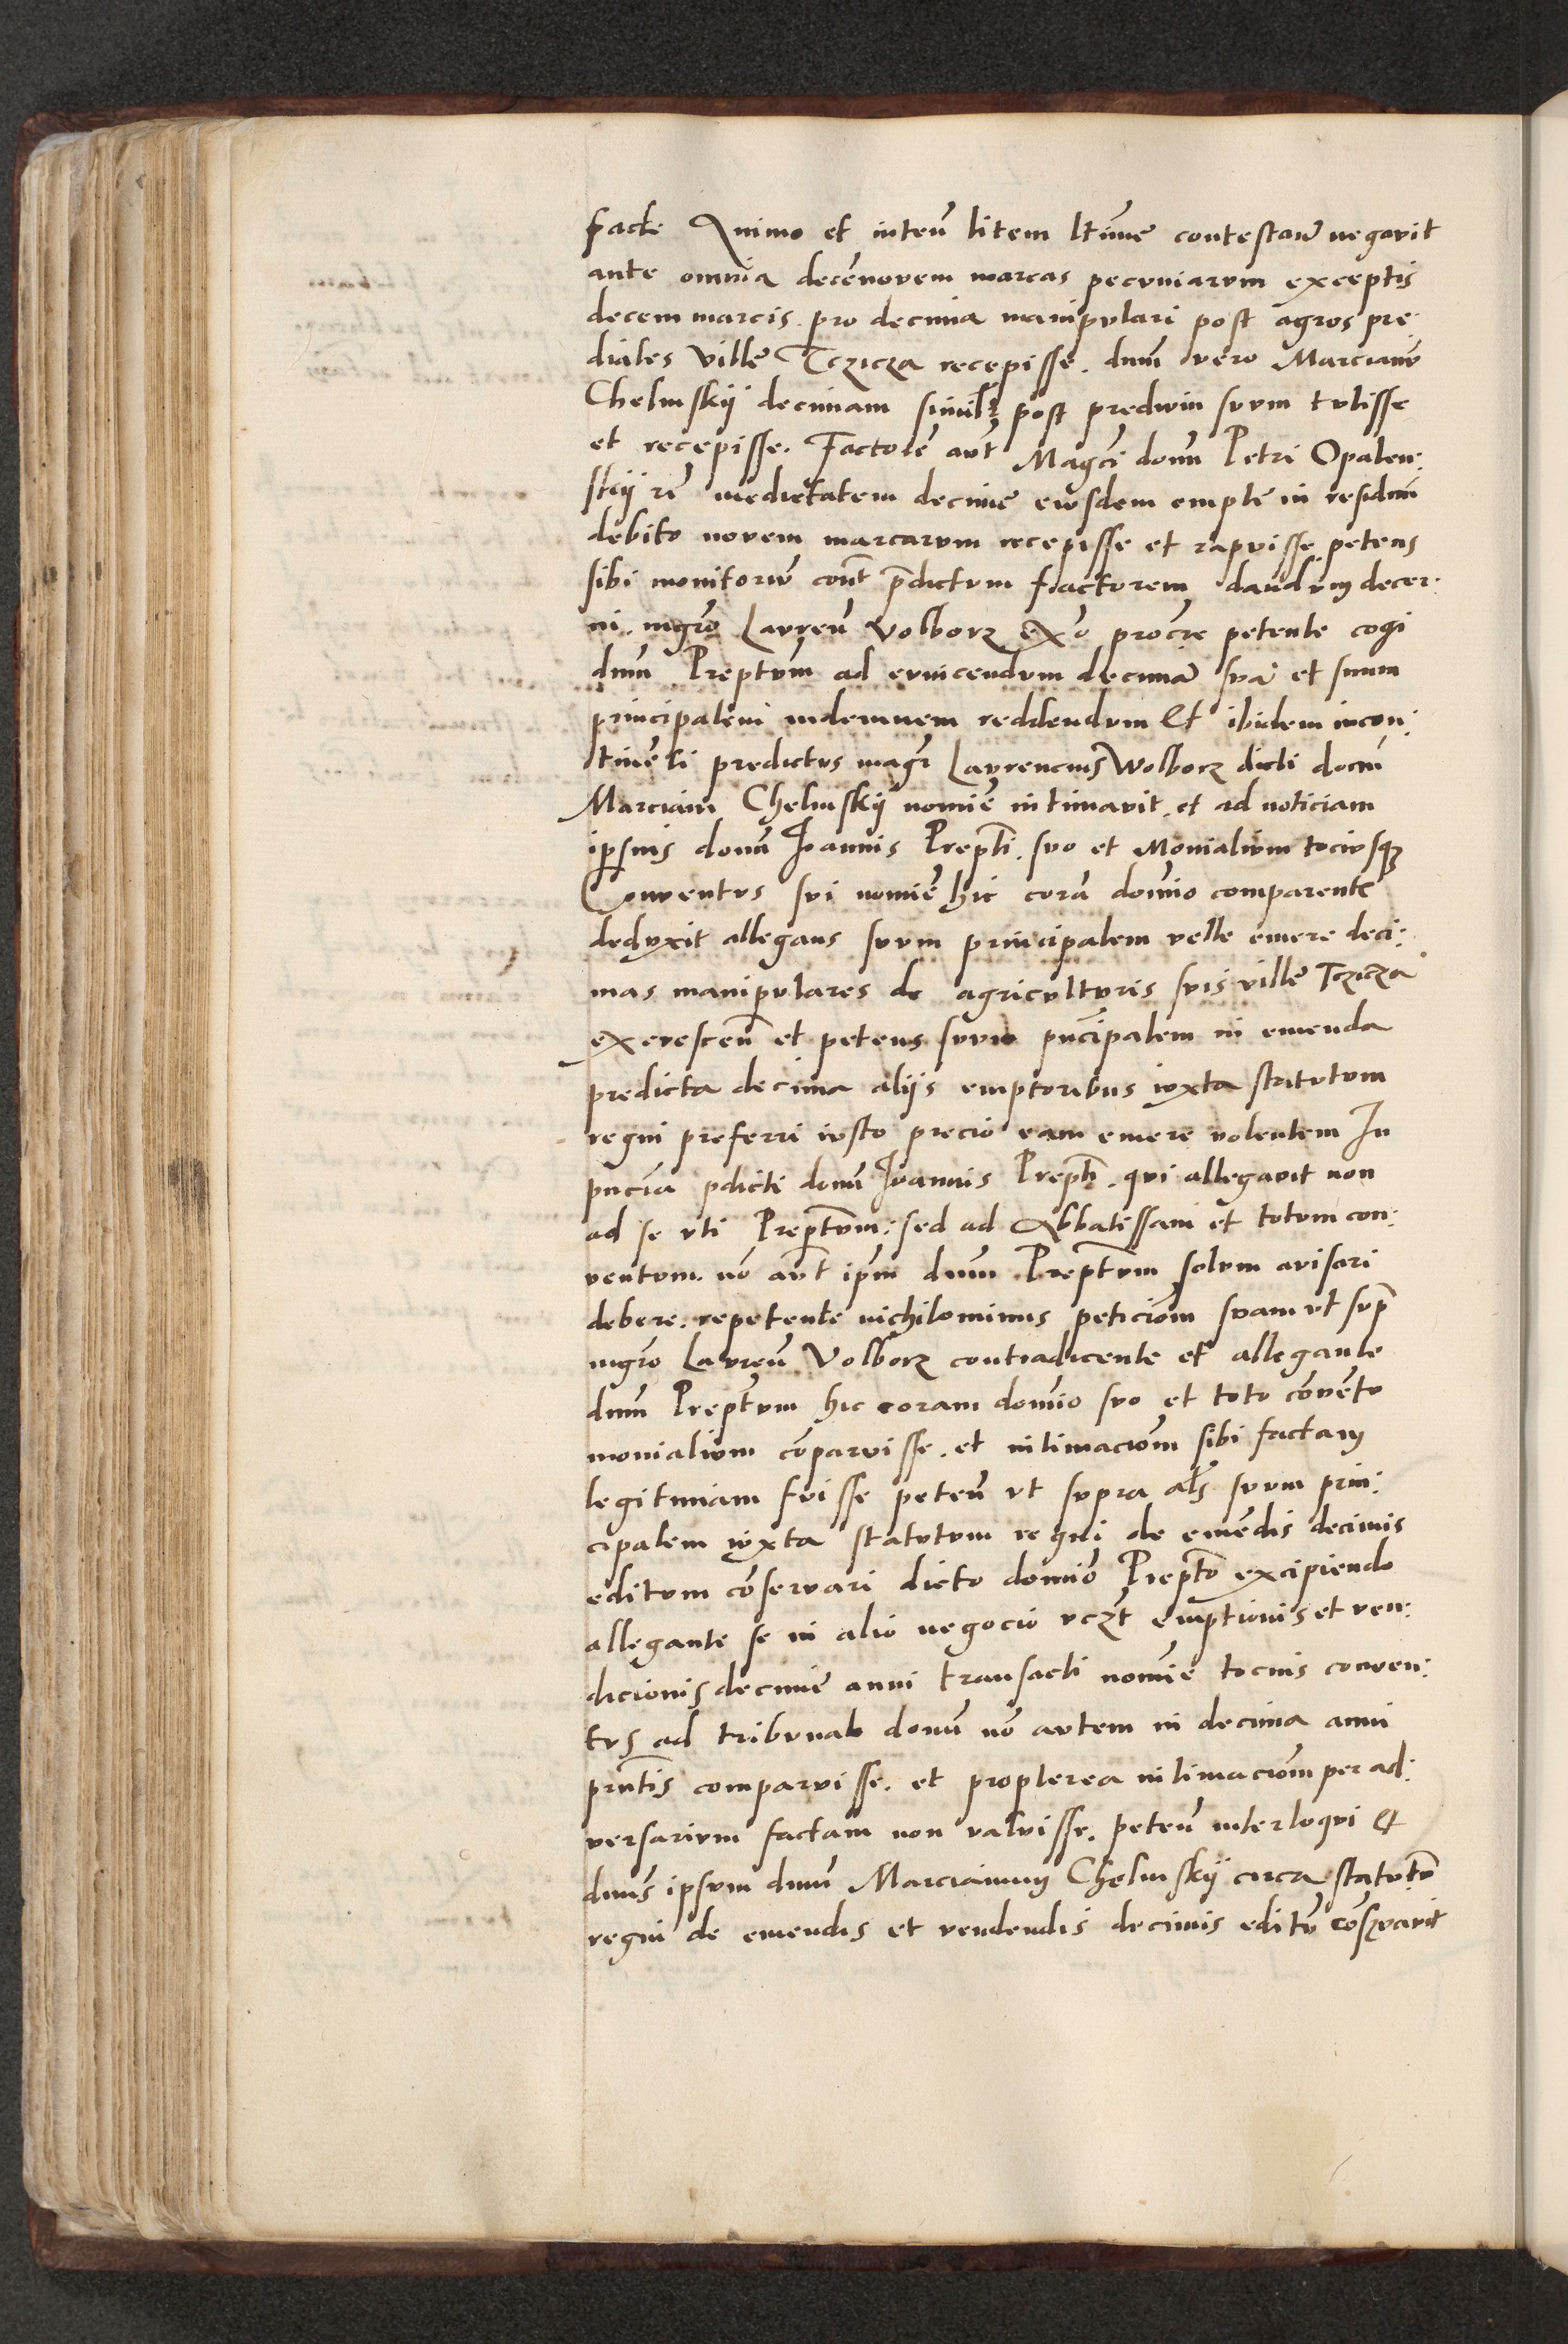 facte Animo et inteñ litem ltiṁe contestaῆ negavit
ante omnia decēnovem marcas pecuniarum exceptis
decem marcis. pro decima manipulari post agros pre:
diales ville Tczicza recepisse. dnm̄ vero Marcianū
Chelmskij decimam similr post predium suum tulisse
et recepisse. Factorē aut̄ Magci domī Petri Opalen:
skij medietatem decime eiusdem empte in residuū
debito novem marcarum recepisse et rapuisse petens
sibi monitoriū cont̄ p̄dictum factorem dandum decer:
ni. mgr̄o Laureñ Volborz exo procr̄e petente cogi
dnm̄ Preptum̄ ad evincendum decimā suā et suum
principalem indemnem reddendum Et ibidem incon:
tinēti predictus magr̄ Laurencius Wolborz dicti domī
Marciani Chelmskij nomiē intimavit. et ad noticiam
ipsius domī Joannis Prepti. suo et Monialium tociusqz
Conventus sui nomiē hic corā domīo comparente
deduxit allegans suum principalem velle emere deci:
mas manipulares de agriculturis suis ville Tczicza
excresceñ et petens suum pncipalem in emenda
predicta decima alijs emptoribus iuxta statutum
regni preferri iusto precio eam emere volentem In
pncia pdicti domī Joannis Prepti. qui allegavit non
ad se uti Preptum̄: sed ad Abbatissam et totum con:
ventum. nō aut̄ ipm̄ dnm̄ Preptum̄ solum avisari
debere. repetente nichilominus peticiōm suam ut sup̄
mgr̄o Laureñ Volborz contradicente et allegante
dnm̄ Preptum̄ hic coram domīo suo et toto cōvētu
monialium cōparuisse. et intimaciōm sibi factam
legitimam fuisse peteñ ut supra als suum prin:
cipalem iuxta statutum regni de emēdis decimis
editum cōservari dicto domīo Prepto excipiendo
allegante se in alio negocio vczt emptionis et ven:
dicionis decime anni transacti nomiē tocius conven:
tus ad tribunal domī nō autem in decima anni
prn̄tis comparuisse. et propterea intimaciōm per ad:
versarium factam non valuisse. peteñ interloqui et
dnūs ipsum dnm̄ Marcianum Chelmskij circa statutū
regni de emendis et vendendis decimis editū cōservavit